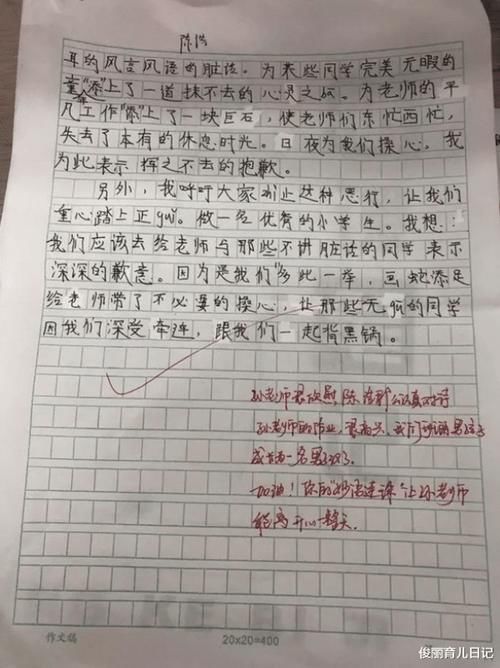 陈浩
耳的风言风语的脏话。为某些同学完美无暇的
童年“添”上了一道抹不去的心灵之
。为老师的平
凡工作“添”上了一块巨石，使老师们东忙西忙，
失去了本有的休息时光。日夜为我们操心。我
为此表示挥之不去的抱歉。
另外，我呼吁大家制止这种恶行，让我们
重心踏上正gui。做一名优秀的小学生。我想：
我们应该去给老师与那些不讲脏话的同学表示
深深的歉意。因为是我们“多此一举，画蛇添足
给老师带了不必要的操心，让那些无gu的同学
因我们深受牵连，跟我们一起背黑锅。
孙老师很欣慰，陈浩 认真对待
孙老师的作业，很高兴，我们班的男孩子
成为一名男
了。
加油！你的“妙语连珠”让孙老师
能高开心一整天。
作文稿
20×20=400
俊丽育儿日记